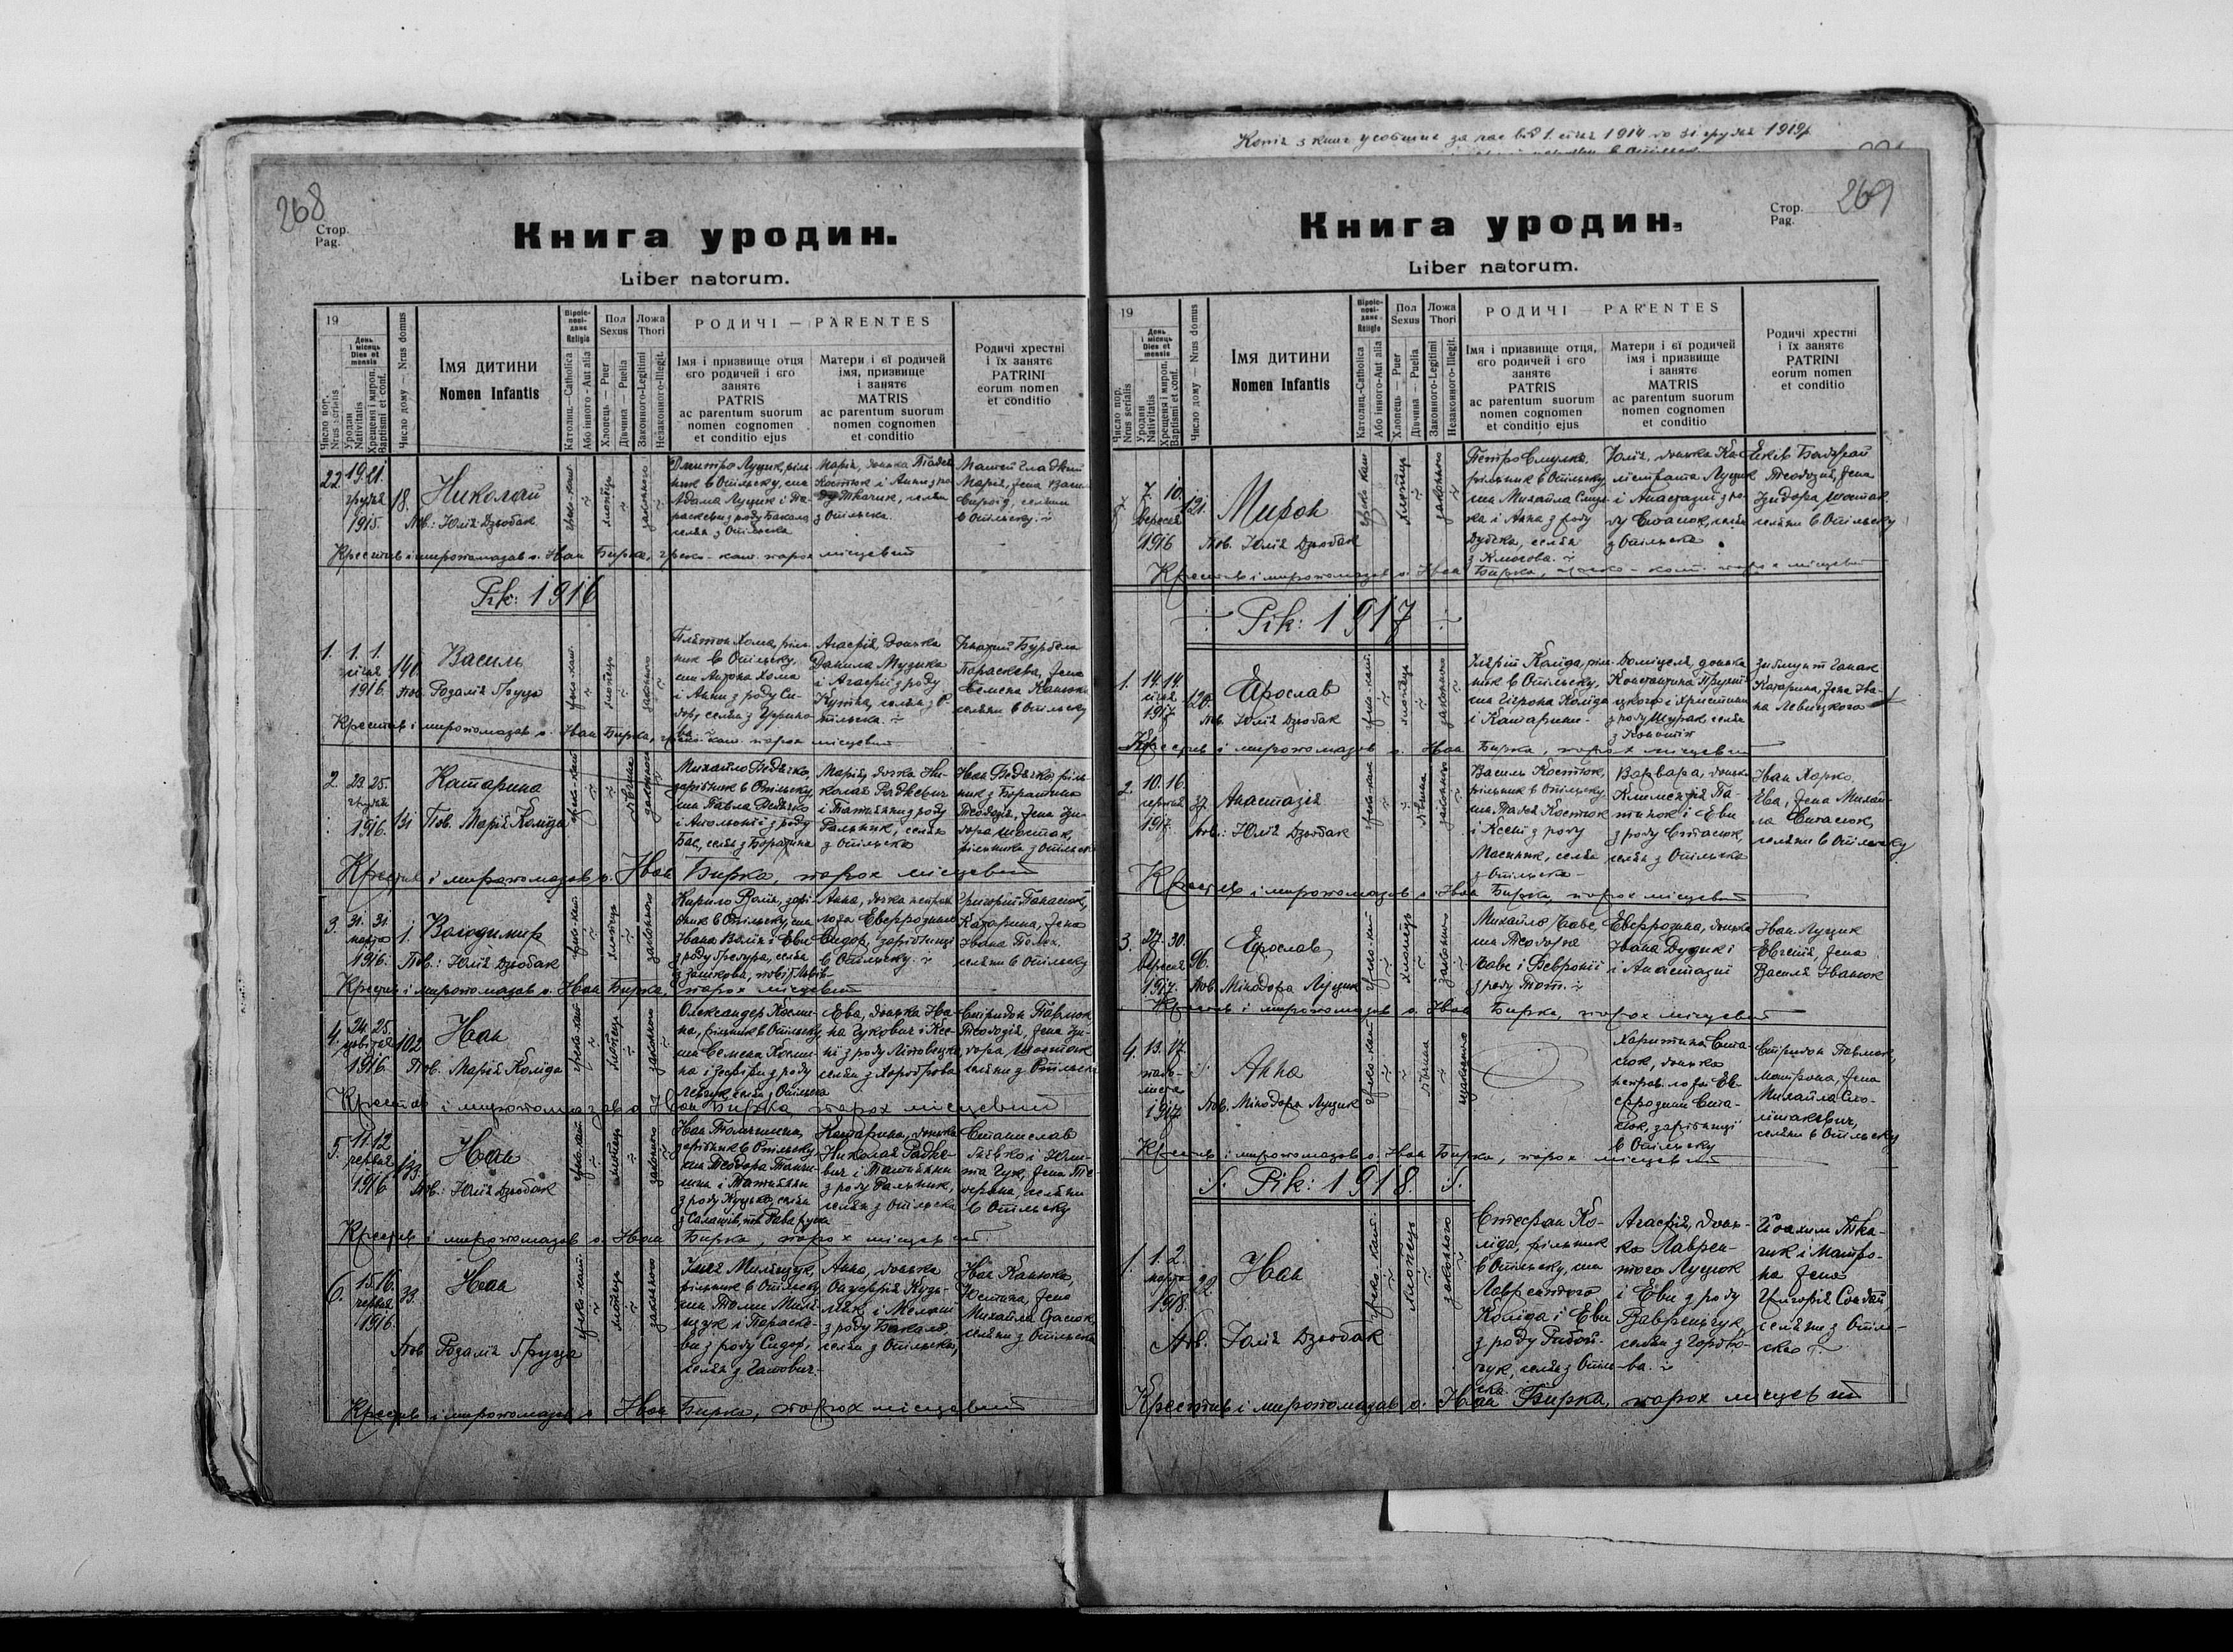 Копія з книг усопших за час від 1. січня 1914 до 31. грудня 1919р.
268
Стор.
Pag.
Книга уродин.
Liber natorum.
19
Число пор.
Nrus serialis
День і місяць
Dies et mensis
Уродин
Nativitatis
Хрещеня і мироп.
Baptismi et conf.
Число дому — Nrus domus
Імя дитини
Nomen Infantis
Віроіс-
пові-
данє
Religio
Католиц. - Catholica
Або інного - Aut alia
Пол
Sexus
Хлопець — Puer
Дівчина — Puella
Ложа
Thori
Законного-Legitimi
Незаконного-Illegit.
РОДИЧІ — PARENTES
Імя і призвище отця
єго родичей і єго
занятє
PATRIS
ac parentum suorum
nomen cognomen
et conditio ejus
Матери і єї родичей
імя, призвище
і занятє
MATRIS
ac parentum suorum
nomen cognomen
et conditio
Родичі хрестні
і їх занятє
PATRINI
eorum nomen
et conditio
22. 19. 21.
грудня
1915.
18.
Николай
Пов.: Юлія Дзюбак
греко-кат.
хлопець
законного
Дмитро Луцик,ріль-
ник в Опільску, син
Адама Луцик і Па-
раскевии з роду Бакало
селян з Опільска
Марія, донька Тадея
Костюк і Анни з ро-
ду Ткачик, селян
з Опільска.
Мария, жена
селяни
в Опільску.
Крестив і миропомазав о. Иван Бирка, греко-кат. парох місцевий
Рік: 1916
1. 1. 1.
січня
1916.
140.
Василь
Пов. Розалія Пруца
греко-кат.
хлопець
законного
Плятон Хома,ріль-
ник в Опільску,
син Антона Хома
і Анни з роду Си-
дор, селян з
Агафія, донька
Данила Музика
і Агафії з роду
Кутна, селян з О-
пільска.
Бурбела
Параскева, жена
Семена Канюка
селяни в Опільску
Крестив і миропомазав о. Иван Бирка, греко-кат. парох місцевий
2. 23. 25.
1916.
131
Катарина
Пов. Марія Коліда
греко-кат.
дівчина
законного
Михайло Ведьчко,
зарібник в Опільску,
син Павла Ведьчко
і Аполонії з роду
Бас, селян з Боратина
Марія, дочка Ни-
колая Радкевич
і Татьянни з роду
Ральник, селян
з Опільска
Иван Ведьчко, ріль-
ник з Боратина
Теодозія, жена Ізи-
дора Шостак,
рільника з Опільска
Крестив і миропомазав о. Иван Бирка, парох місцевий
3. 31. 31.
марта
1916.
1.
Володимир
Пов.: Юлія Дзюбак
греко-кат.
хлопець
законного
Кирило Волян, зарі-
бник в Опільску, син
Ивана Волян і Еви
з роду Грегура, селян
Анна, дочка неправ.
ложа Евфрозини
Сидор, зарібниці
в Опільску.
Григорій Панасюк,
Катарина, жена
Ивана Полех
селяни в Опільску
Крестив і миропомазав о. Иван Бирка, парох місцевий
4. 24. 25.
цвітня
1916.
102
Иван
Пов. Марія Коліда
греко-кат.
хлопець
законного
Олександер Косми-
на, рільник в Опільску,
син Семена Косми-
на і Зефіри з роду
Левчук, селян з Опільска
Ева, донька Ива-
на Гукович і Ксе-
ні з роду Літовецка,
селян з Хороброва
Спіридон Павлюк
Теодозія, жена Ізи-
дора Шостак
селяни з Опільска
Крестив і миропомазав о. Иван Бирка, парох місцевий
5. 11. 12.
червня
1916
133.
Иван
Пов.: Юлія Дзюбак
греко-кат.
хлопець
законного
Иван
зарібник в Опільску
син Теодора
і Татьянни
з роду Куцько, селян
Рава руска
Катарина, донька
Николая Радке-
вич і Татьянни
з роду Ральник,
селян з Опільска
Станислав
Гук, жена
селяни
в Опільску
Крестив і миропомазав о. Иван Бирка, парох місцевий.
6. 15. 16.
червня
1916.
33.
Иван
Пов. Розалія Пруца
греко-кат.
хлопець
законного
Ілля Милящук,
рільник в Опільску
син Томи Миля-
щук і Параске-
ви з роду Сидор,
селян з
Анна, донька
Онуфрія Кузь-
і Меланії
з роду Бакало,
селян з Опільска,
Иван Канюка,
Юстина, жена
Михайла Стасюк,
селяни з Опільска
Крестив і миропомазав о. Иван Бирка, парох місцевий
269
Стор.
Pag.
Книга уродин.
Liber natorum.
19
Число пор.
Nrus serialis
День і місяць
Dies et mensis
Уродин
Nativitatis
Хрещеня і мироп.
Baptismi et conf.
Число дому — Nrus domus
Імя дитини
Nomen Infantis
Віроіс-
пові-
данє
Religio
Католиц.-Catholica
Або інного - Aut alia
Пол
Sexus
Хлопець — Puer
Дівчина — Puella
Ложа
Thori
Законного-Legitimi
Незаконного-Illegit.
РОДИЧІ — PARENTES
Імя і призвище отця,
єго родичей і єго
занятє
PATRIS
ac parentum suorum
nomen cognomen
et conditio ejus
Матери і єї родичей
імя і призвище
і занятє
MATRIS
ac parentum suorum
nomen cognomen
et conditio
Родичі хрестні
і їх занятє
PATRINI
eorum nomen
et conditio
7. 10.
вересня
1916
121.
Мирон
Пов. Юлія Дзюбак
греко кат.
хлопець
законного
Петро Смулка,
рільник в Опільску
син Михайла Смул-
ка і Анна з роду
Дубска, селян
Юлія, донька Ка-
лістрата Луцик
і Анастазії з ро-
ду Стасюк, селян
з Опільска
Яків Бабарай
Теодозия, жена
Ізидора Шостак
селяни в Опільску
Крестив і миропомазав о. Иван Бирка, греко-кат. парох місцевий
Рік: 1917
1. 14. 14
січня
1917
120.
Ярослав
Пов. Юлія Дзюбак
греко-кат.
хлопець
законного
Ілярій Коліда, ріль-
ник в Опільску,
син Мирона Коліда
і Катарини.
Доміцеля, донька
Константина
і Христини
з роду Щурак селян
Зигмунт
Катарина, жена Ива-
на Левицкого
Крестив і миропомазав о. Иван Бирка, парох місцевий
2. 10. 16.
червня
1917.
37.
Анастазія
Пов.: Юлія Дзюбак
греко-кат
дівчина
законного
Василь Костюк,
рільник в Опільску
син Тадея Костюк
і Ксені з роду
Масиник, селян
з Опільска
Варвара, донька
Климентія Па-
тинок і Еви
з роду Стасюк,
селян з Опільска
Іван Харко,
Ева, жена Михай-
ла Стасюк,
селяни в Опільску
Крестив і миропомазав о. Иван Бирка, парох місцевий
3. 27. 30.
вересня
1917.
96.
Ярослав
Пов. Мінодора Луцик
греко-кат
хлопець
законного
Михайло Савс,
син Теодора
Савс і Февронії
з роду Тот.
Евфрозина, донька
Івана Дудик і
і Анастазиї
Иван Луцик
Евгенія, жена
Василя Иванюк
Крестив і миропомазав о. Иван Бирка, парох місцевий
4. 13. 17.
падо-
листа
1917
Анна
Пов. Мінодора Луцик
греко-кат
дівчина
Харитина Ста-
сюк, донька
неправ. ложа Ев-
фрозини Ста-
сюк, зарібниці
в Опільску
Спіридон Павлюк,
Матрона, жена
Михайла
селяни в Опільску
Крестив і миропомазав о. Иван Бирка, парох місцевий
Рік: 1918.
1. 1. 2.
марта
1918.
22.
Иван
Пов. Юлія Дзюбак
греко-кат.
хлопець
законного
Стефан Ко-
ліда, рільник
в Опільску, син
Лаврентого
Коліда і Еви
з роду Рибой-
чук, селян з Опіль-
ска.
Агафія, донь-
ка Лаврен-
того Луцюк
і Еви з роду
Гавренчук,
селян з
Йоахим Тка-
чик і Матро-
на жена
Григорія
селяни з Опіль-
ска
Крестив і миропомазав о. Иван Бирка, парох місцевий